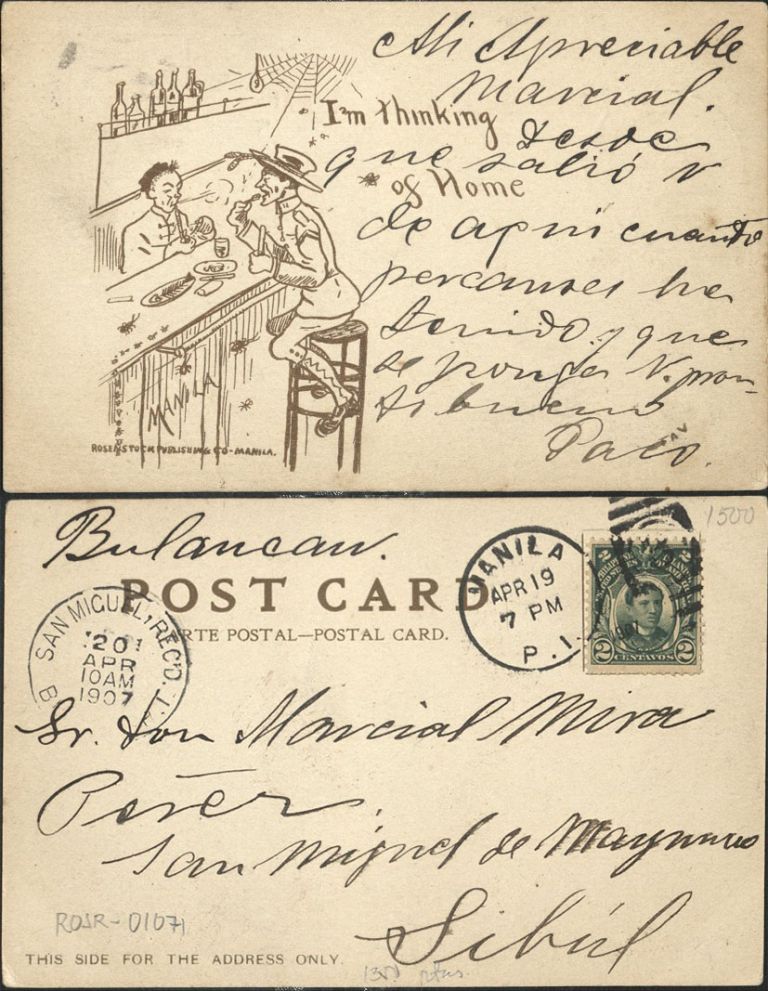 Mi Apreciable
Marcial.
I'm thinking
desde
que salió V
of Home
de aqui cuanto
percanses he
tenido, y que
se ponga V. pron-
to bueno
Paco.
MANILA
ROSENSTOCK PUBLISHING CO-MANILA.
1500
Bulancan.
POST CARD
CARTE POSTAL—POSTAL CARD.
MANILA
APR 19
7 PM
P. I.
SAN MIGUEL, REC'D.
20
APR
10AM
1907
B
I.
PHILIPPINE ISLANDS
UNITED STATES OF AMERICA
2 CENTAVOS 2
Sr. Don Marcial Mira
Perer.
San Miguel de Mayumo
Sibúl
ROSR-01071
THIS SIDE FOR THE ADDRESS ONLY.
ptas.